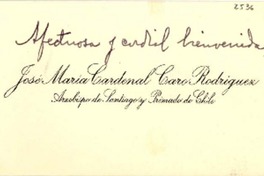 2536
Afectuosa y cordial bienvenida
José María Cardenal Caro Rodríguez
Arzobispo de Santiago y Primado de Chile